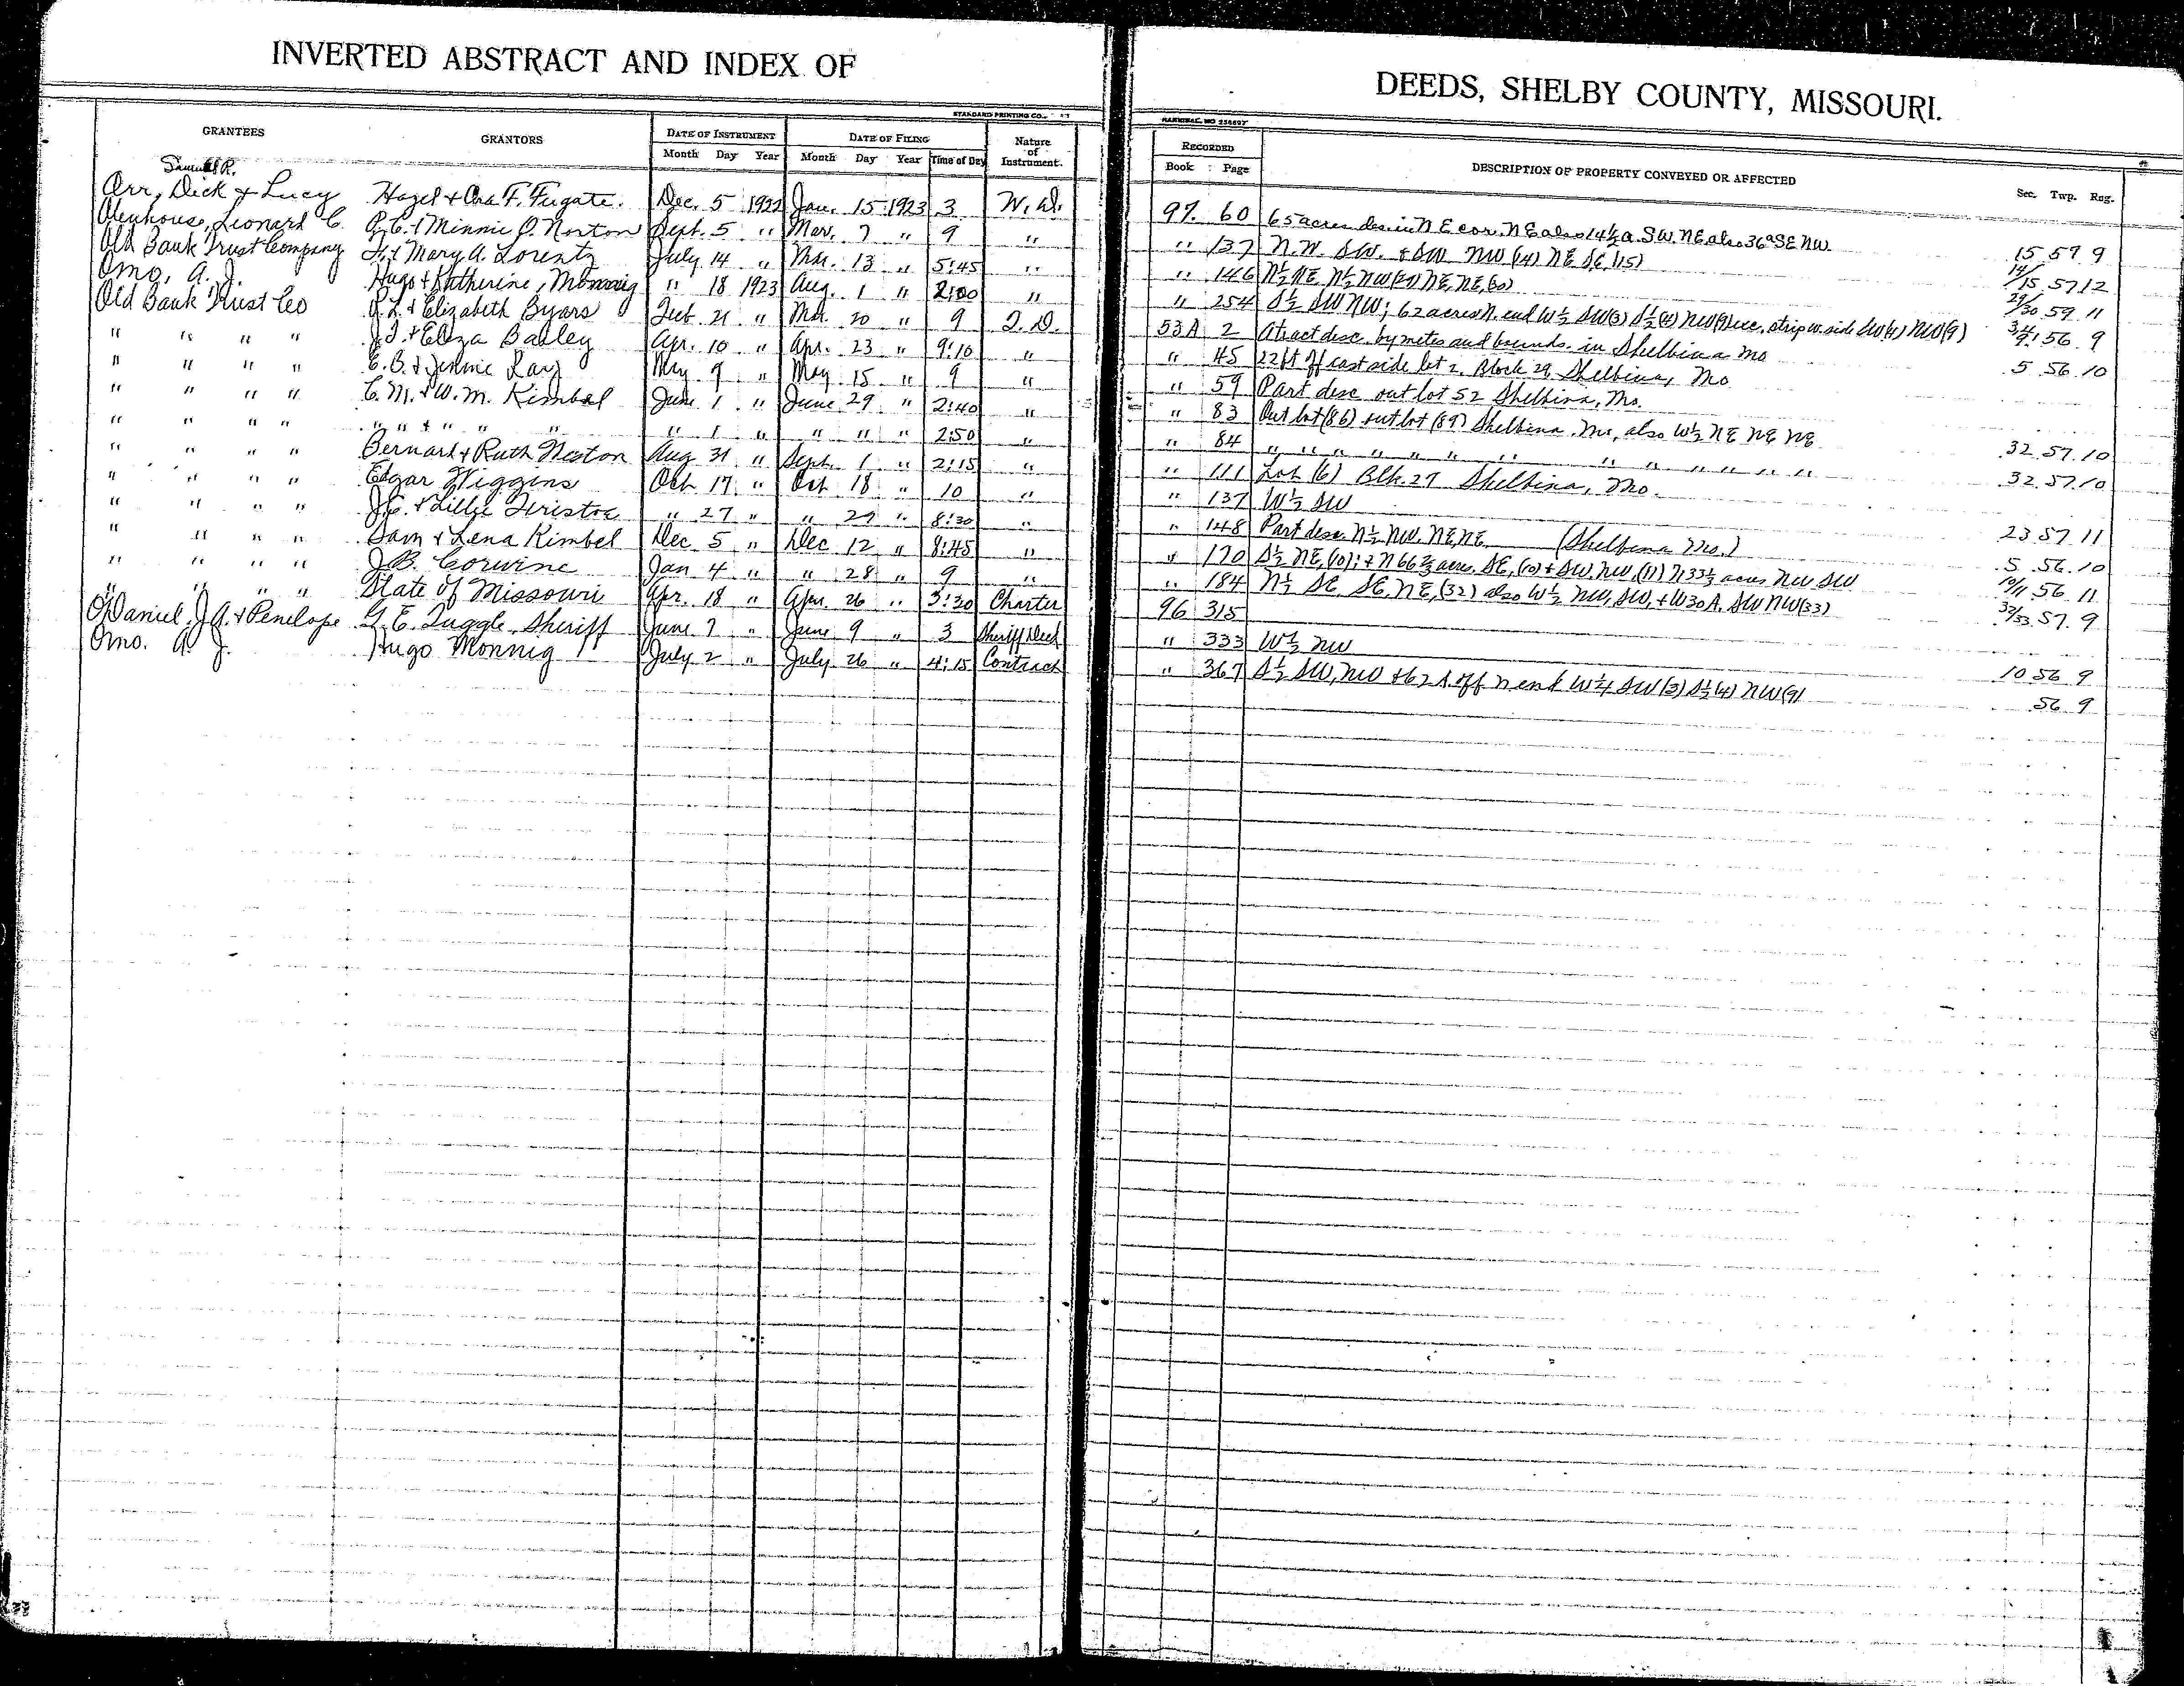 INVERTED ABSTRACT AND INDEX OF
DEEDS, SHELBY COUNTY, MISSOURI.
STANDARD PRINTING CO.
HANNIBAL, MO
GRANTEES GRANTORS DATE OF INSTRUMENT DATE OF FILING Nature of Instrument. RECORDED DESCRIPTION OF PROPERTY CONVEYED OR AFFECTED Sec. Twp. Rng.
Month Day Year Month Day Year Time of Day Book Page
Samuel R.
Orr, Dick & Lucy Hazel & Ora F. Fugate. Dec. 5 1922 Jan. 15 1923 3 W.D. 97. 60 65 acres des. in N E cor. N E also 14½ a. S.W. NE also 36 a SE NW. 15 59 9
Leonard C. & Minnie O. Norton Sept. 5 " Mar. 7 " 9 " " 137 N.W. SW. & SW NW (14) NE SE (15) 14/15 57 12
Old Bank Trust Company & Mary A. Lorentz July 14 " Mar. 13 " 5:45 " " 146 N½ NE N½ NW (29) NE, NE, (30) 29/30 59 11
Omo, A. J. Hugo & Katherine, Monnig " 18 1923 Aug. 1 " 2:00 " " 254 S½ SW NW; 62 acres N. end W½ SW(3) S½ (4) NW(9) exc. strip w. side SW(4) NW(9) 3/4/9 56 9
Old Bank Trust Co & Elizabeth Byars Feb. 21 " Mar. 20 " 9 T.D. 53A 2 A tract desc. by metes and bounds. in Shelbina Mo 5 56 10
" " " " J.T. & Eliza Bailey Apr. 10 " Apr. 23 " 9:10 " " 45 22 ft off east side lot 2. Block 29, Shelbina, Mo
" " " " C.B. & Jennie Ray May 9 " May 15 " 9 " " 59 Part desc out lot 52 Shelbina, Mo.
" " " " C.M. & W.M. Kimbal June 1 " June 29 " 2:40 " " 83 Out lot (86) out lot (89) Shelbina, Mo, also W½ NE NE NE 32 57 10
" " " " " " & " " " " 1 " " " " 2:50 " " 84 " " " " " " " " " " " " " " 32 57 10
" " " " Bernard & Ruth Aug 31 " Sept. 1 " 2:15 " " 111 Lot (6) Blk. 27 Shelbina, Mo.
" " " " Edgar Wiggins Oct 17 " Oct 18 " 10 " " 137 W½ SW 23 57 11
" " " " J.C. & Lillie " 27 " " 29 " 8:30 " " 148 Part desc. N½ NW. NE, NE (Shelbina Mo.) 5 56 10
" " " " Sam & Lena Kimbel Dec. 5 " Dec. 12 " 8:45 " " 170 S½ NE, (10); & N 66⅔ acres SE, (10) & SW, NW, (11) N 33⅓ acres NW SW 10/11 56 11
" " " " J.B. Corwine Jan 4 " " 28 " 9 " " 184 N½ SE SE, NE, (32) also W½ NW, SW, & W30 A. SW NW (33) 32/33 57 9
" " " " State of Missouri Apr. 18 " Apr. 26 " 3:30 Charter 96 315
O'Daniel, J.A. & Penelope G.E. Tuggle, Sheriff June 7 " June 9 " 3 Sheriff Deed " 333 W½ NW 10 56 9
Omo. A. J. Hugo Monnig July 2 " July 26 " 4:15 Contract " 367 S½ SW, NW & 62 A off N end W½ SW (3) S½ (4) NW (9) 56 9